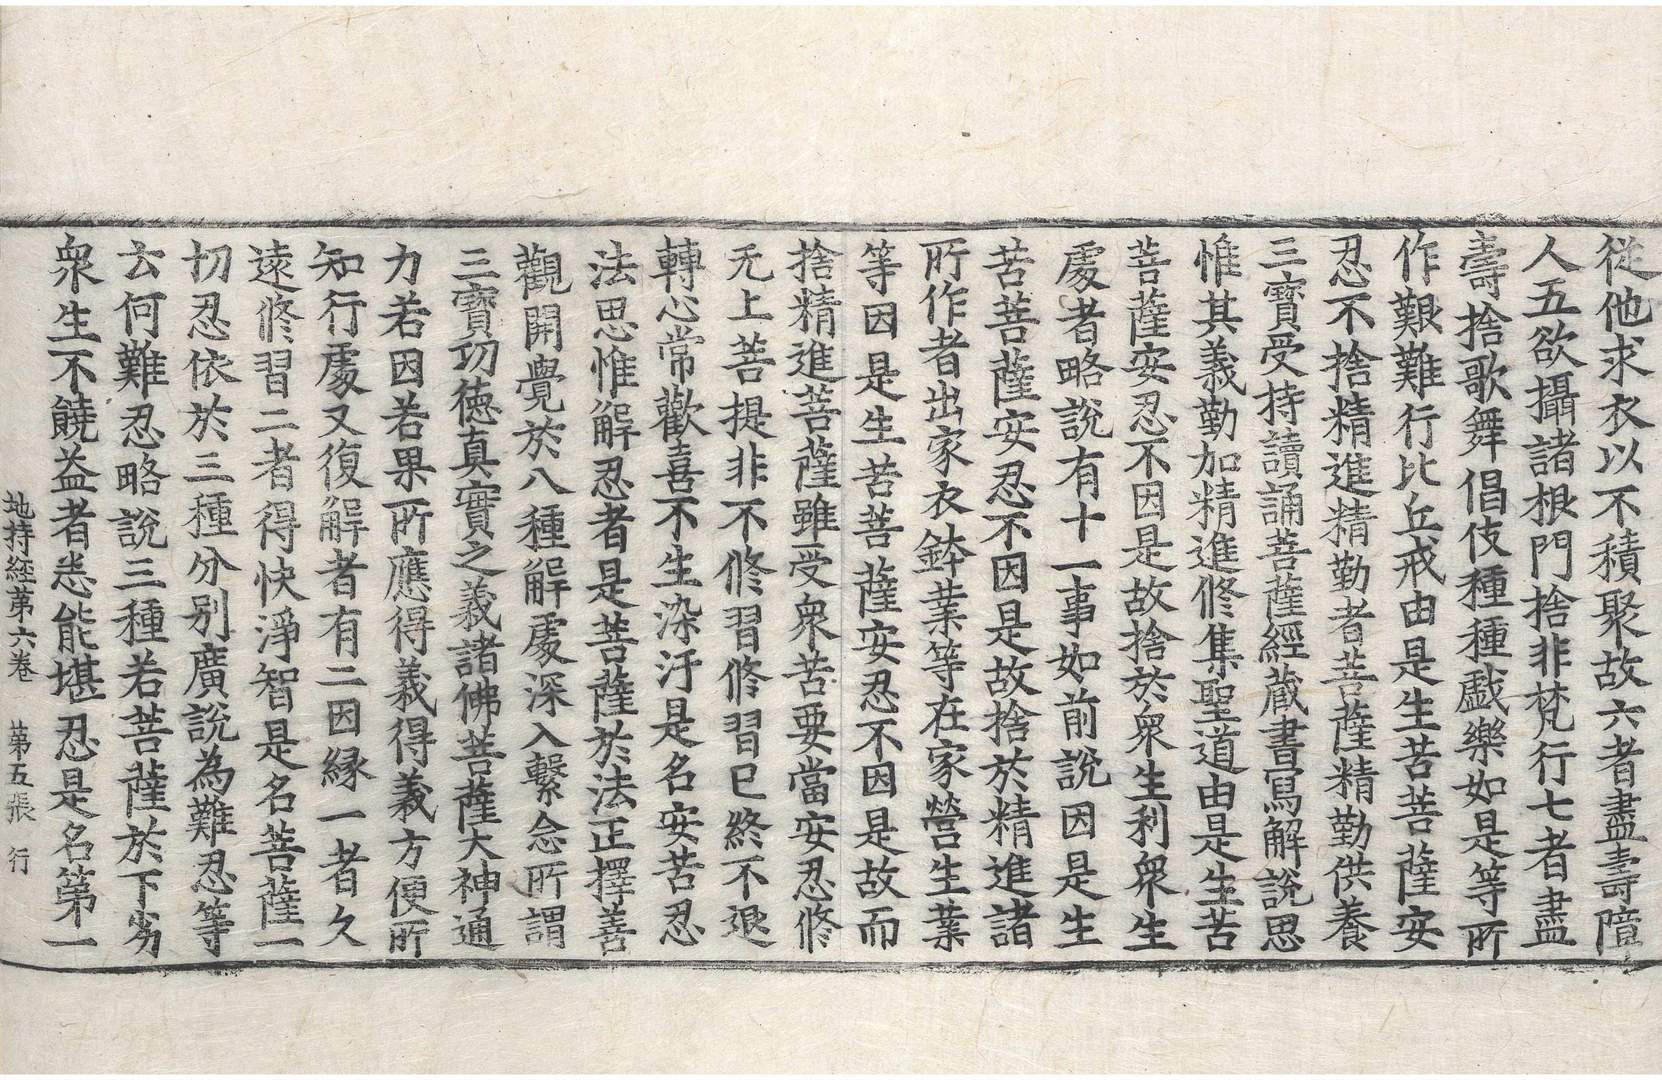 從他求衣以不積聚故六者盡壽障
人五欲攝諸根門捨非梵行七者盡
壽捨歌舞倡伎種種戲樂如是等所
作艱難行比丘戒由是生苦菩薩安
忍不捨精進精勤者菩薩精勤供養
三寶受持讀誦菩薩經藏書寫解說思
惟其義勤加精進修集聖道由是生苦
菩薩安忍不因是故捨於衆生利衆生
處者略說有十一事如前說因是生
苦菩薩安忍不因是故捨於精進諸
所作者出家衣鉢業等在家營生業
等因是生苦菩薩安忍不因是故而
捨精進菩薩雖受衆苦要當安忍修
无上菩提非不修習修習已終不退
轉心常歡喜不生染汙是名安苦忍
法思惟解忍者是菩薩於法正擇善
觀開覺於八種解處深入繫念所謂
三寶功德真實之義諸佛菩薩大神通
力若因若果所應得義得義方便所
知行處又復解者有二因緣一者久
遠修習二者得快淨智是名菩薩一
切忍依於三種分别廣說為難忍等
云何難忍略說三種若菩薩於下劣
衆生不饒益者悉能堪忍是名第一
地持經苐六卷　苐五張　行